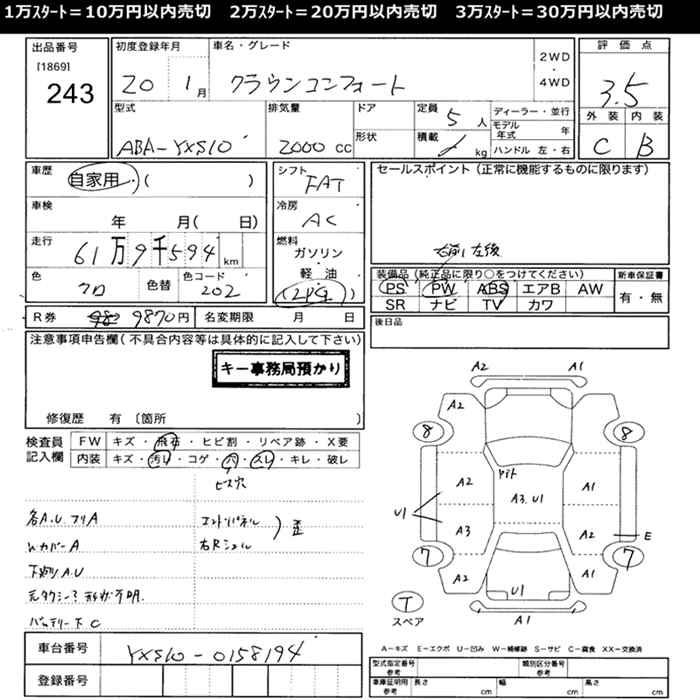 1万ｽﾀｰﾄ＝10万円以内売切　2万ｽﾀｰﾄ＝20万円以内売切　3万ｽﾀｰﾄ＝30万円以内売切
出品番号
[1869]
243
初度登録年月
20 1月
車名・グレード
クラウンコンフォート
2WD
・
4WD
評価点
3.5
外装 内装
C B
型式
ABA-YXS10
排気量
2000 cc
ドア
形状
定員 5 人
積載 kg
ディーラー・並行
モデル年式 年
ハンドル 左・右
車歴
自家用 ( )
車検
年 月( 日)
走行
61万9千594 km
色
クロ
色替
色コード
202
シフト
FAT
冷房
AC
燃料
ガソリン
軽油
(LPG)
セールスポイント（正常に機能するものに限ります）
右前 左後
装備品（純正品に限り○をつけてください）
PS PW ABS エアB AW
SR ナビ TV カワ
新車保証書
有・無
R券 9870円
名変期限 月 日
後日品
注意事項申告欄(不具合内容等は具体的に記入して下さい)
キー事務局預かり
修復歴 有 〔箇所 〕
検査員
記入欄
FW キズ・飛石・ヒビ割・リペア跡・X要
内装 キズ・汚レ・コゲ・穴・スレ・キレ・破レ
ビス穴
各A.U.フリA
エントリパネル
右Rシェル
) 歪
WカバーA
下廻りA.U
元タクシー?形状不明.
バッテリー下C
A2 A1
A2 A1
8 8
A2 ヤケト A1
A3.U1
U1
A3 A2
E
7 7
A2 A1
U1
T
スペア
A1
A－キズ E－エクボ U－凹み W－補修跡 S－サビ C－腐食 XX－交換済
車台番号
YXS10-0158194
登録番号
型式指定番号
参考
類別区分番号
参考
車庫証明用
参考
長さ cm
幅 cm
高さ cm